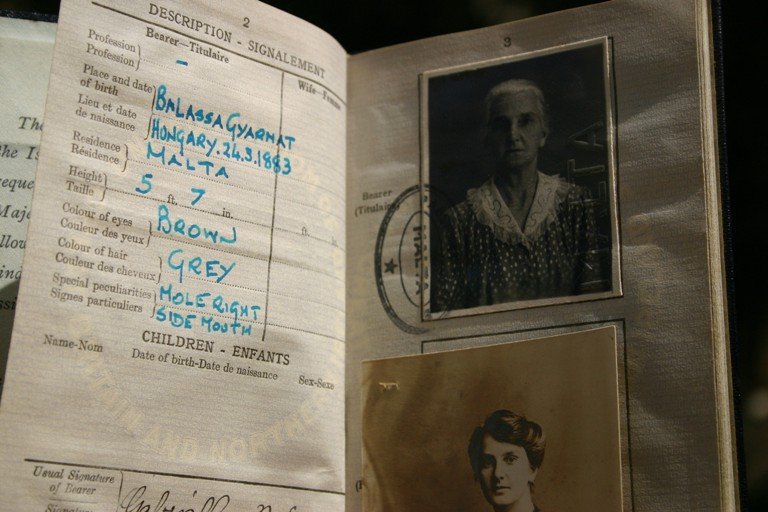 The
he Is
eque
Maje
llow
ing
2
DESCRIPTION - SIGNALEMENT
Bearer—Titulaire
Wife—Femme
Profession
Profession
-
Place and date
of birth
BALASSAGYARMAT
Lieu et date
de naissance
HUNGARY.24.9.1883
Residence
Résidence
MALTA
Height
Taille
5 ft. 7 in.
ft. in.
Colour of eyes
Couleur des yeux
BROWN
Colour of hair
Couleur des cheveux
GREY
Special peculiarities
Signes particuliers
MOLE RIGHT
SIDE MOUTH
CHILDREN - ENFANTS
Name-Nom
Date of birth-Date de naissance
Sex-Sexe
TAIN AND NORTHE
Usual Signature
of Bearer
Signature
3
Bearer
(Titulaire)
MALTA
MALTA